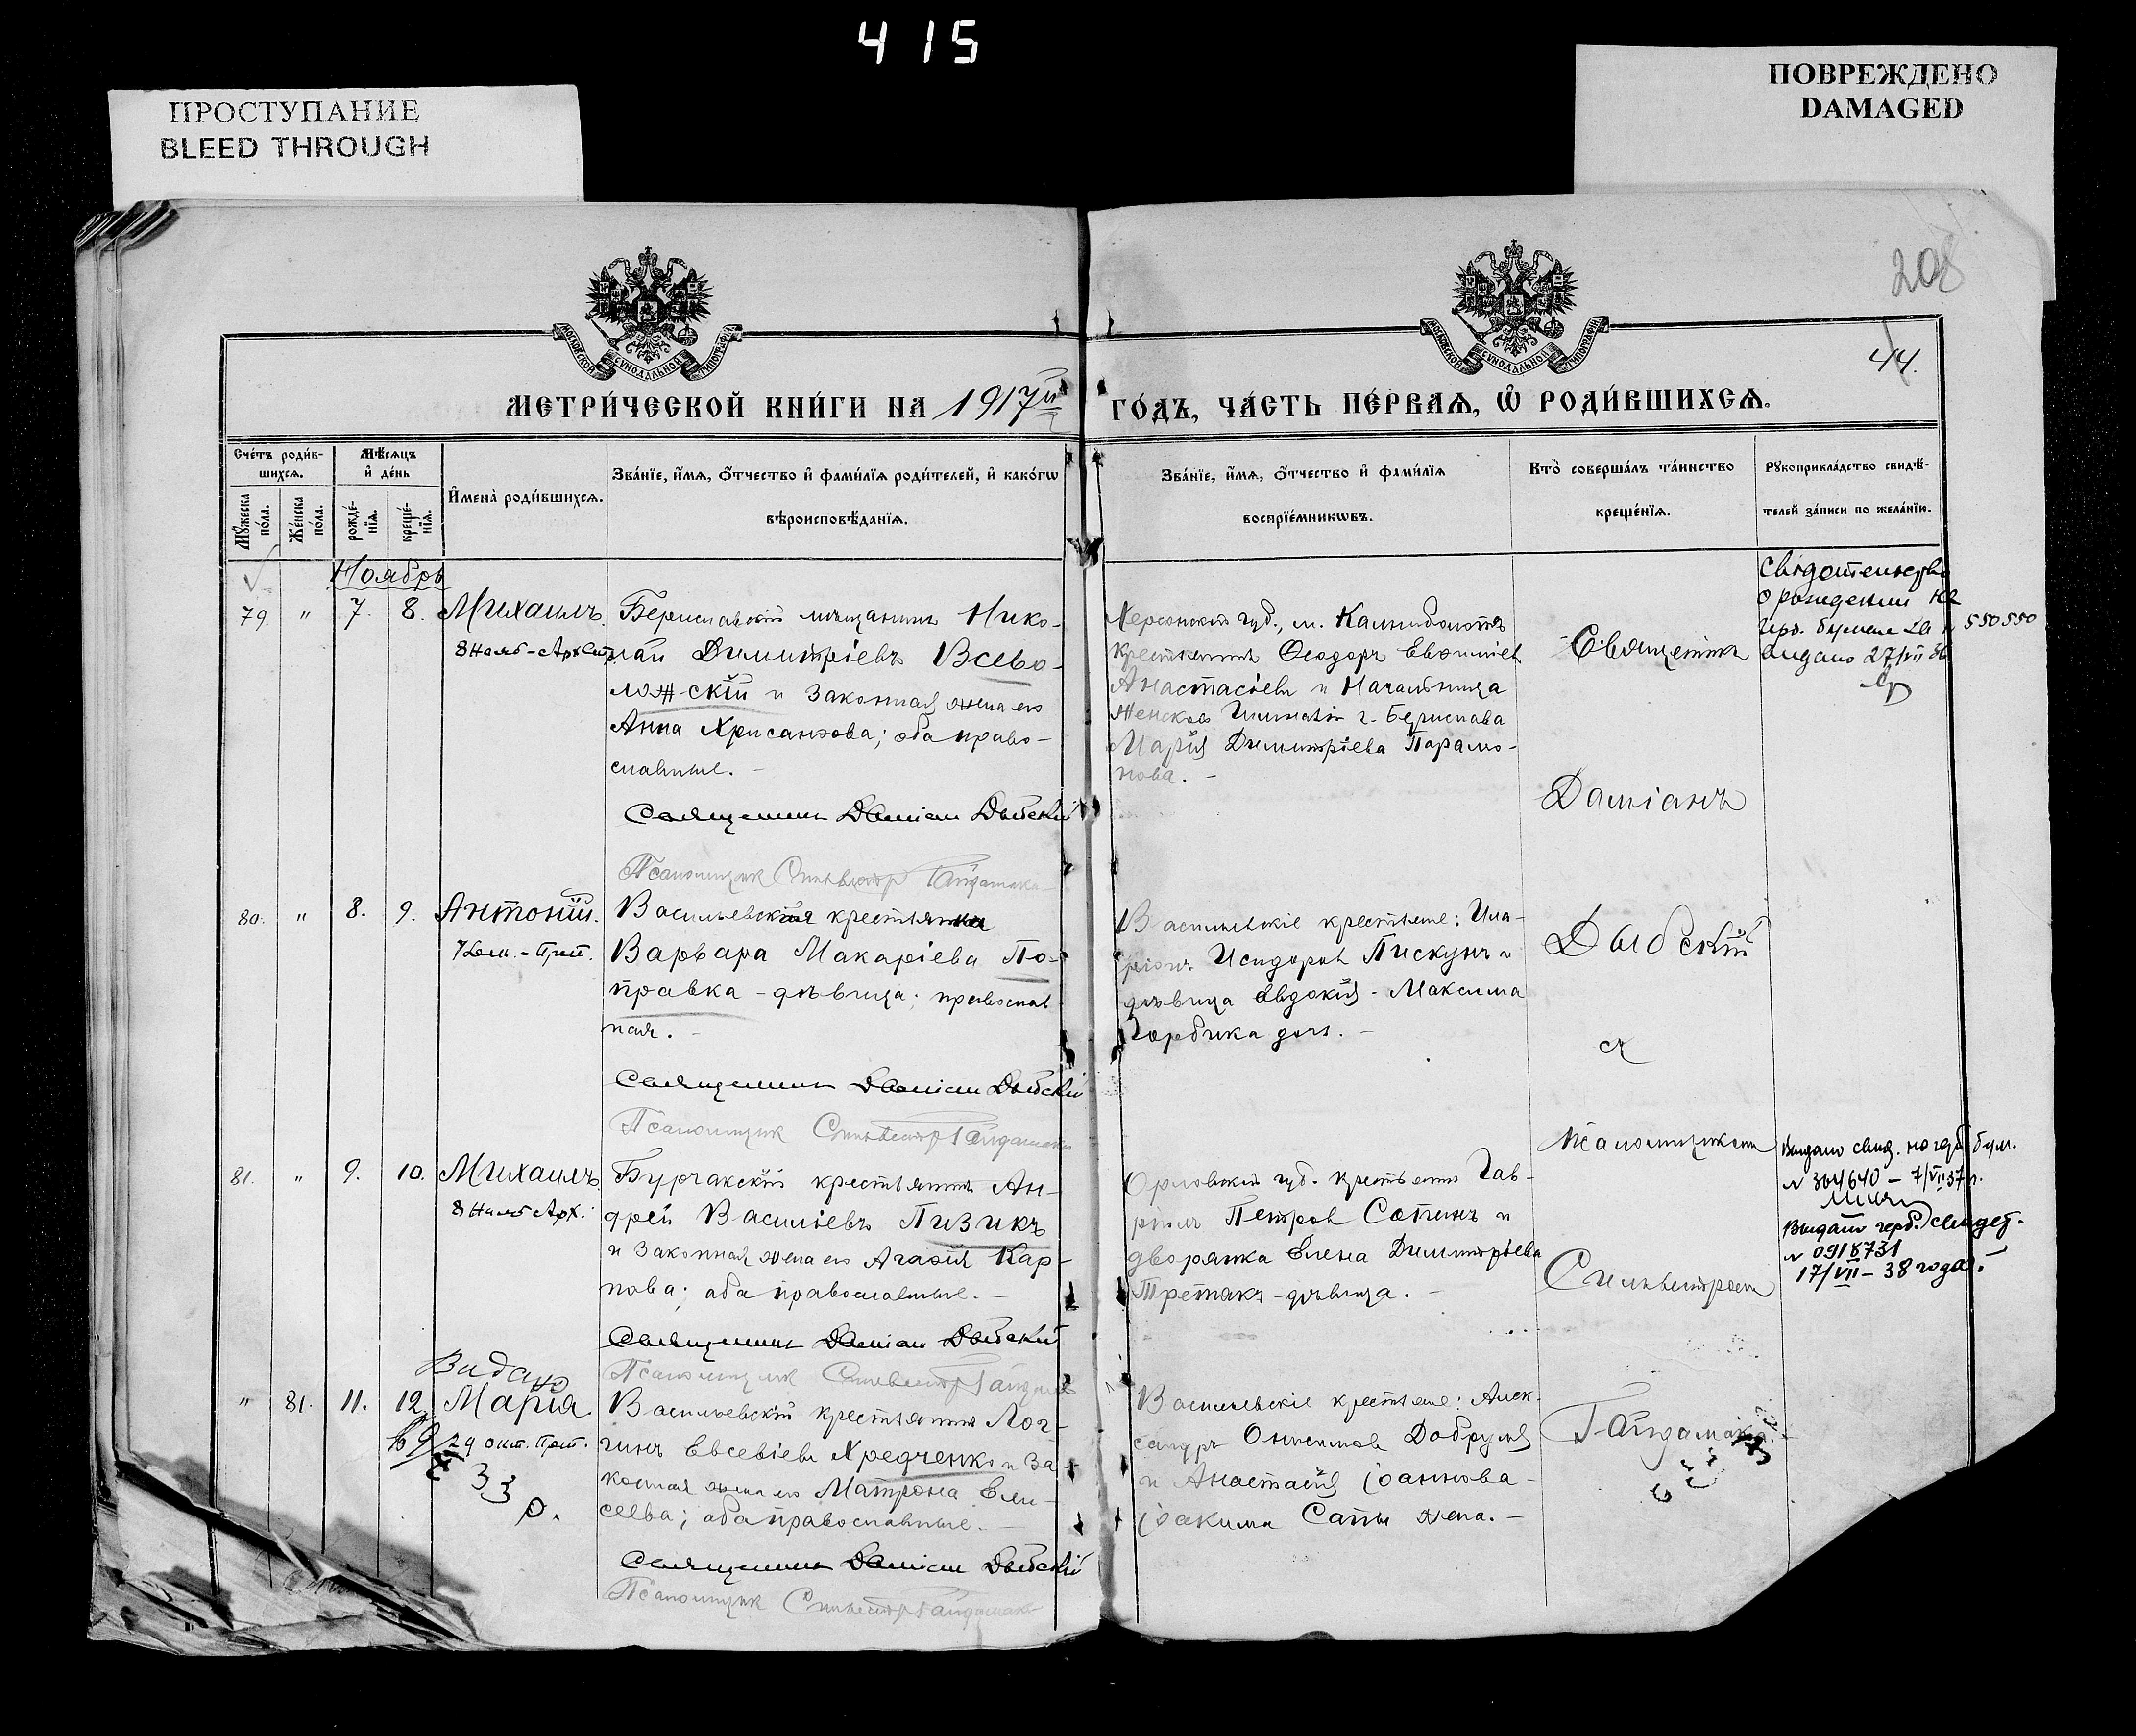 415
ПРОСТУПАНИЕ
BLEED THROUGH
ПОВРЕЖДЕНО
DAMAGED
208
44.
МОСКОВСКОЙ СѴНОДАЛЬНОЙ ТИПОГРАФІИ
МОСКОВСКОЙ СѴНОДАЛЬНОЙ ТИПОГРАФІИ
МЕТРИ́ЧЕСКОЙ КНИ́ГИ НА 1917й
ГО́ДЪ, ЧА́СТЬ ПЕ́РВАѦ, Ѡ РОДИ́ВШИХСѦ.
Сче́тъ роди́в-
шихсѧ.
Мꙋжеска по́ла.
Же́нска по́ла.
Мѣ́сѧцъ
и҆ де́нь
рожде́-
нїѧ.
креще́-
нїѧ.
И҆мена̀ роди́вшихсѧ.
Зва́нїе, и҆́мѧ, ѻ҆́тчество и҆ фами́лїѧ роди́телей, и҆ како́гѡ
вѣроисповѣ́данїѧ.
Зва́нїе, и҆́мѧ, ѻ҆́тчество и҆ фами́лїѧ
воспрїе́мникѡвъ.
Кто̀ соверша́лъ та́инство
креще́нїѧ.
Рꙋкоприкла́дство свидѣ́-
телей за́писи по жела́нїю.
Ноябрь
79. " 7. 8. Михаилъ.
8 Нояб-Арх.
Бериславскій мѣщанинъ Нико-
лай Димитріевъ Всево-
ложскій и законная жена его
Анна Хрисанфова; оба право-
славные.
Священникъ Даміан Дыбскій
Псаломщик Сильвестр Гайдамака
Херсонской губ., м.
крестьянинъ Ѳеодоръ Евфиміев
Анастасіевъ и Начальница
Женской Гимназіи г. Берислава
Марія Димитріева Парамо-
нова.
Священникъ
Даміанъ
Дыбскій
съ
псаломщикомъ
Сильвестромъ
Гайдамака.
Свидетельство
о рождении на
герб. бумаге за № 550550
выдано 27/VII 36
80. " 8. 9. Антоній.
Васильевская крестьянка
Варвара Макаріева По-
правка - дѣвица; православ
ная.
Священникъ Даміан Дыбскій
Псаломщик Сильвестр Гайдамака
Васильевскіе крестьяне: Ила-
ріонъ Исидоров Пискунъ и
дѣвица Евдокія - Максима
Горбика дочь.
81. " 9. 10. Михаилъ.
8 Нояб Арх.
Бурчакскій крестьянинъ Ан-
дрей Василіевъ Пизикъ
и законная жена его Агафія Кар-
пова; оба православные.
Священникъ Даміан Дыбскій
Псаломщик Сильвестр Гайдамака
Орловской губ. крестьянинъ Гав-
ріилъ Петров Сопинъ и
дворянка Елена Димитріева
Третякъ - дѣвица.
Выдано свид. на герб бум.
№ 364640 - 7/VII 37 г.
Выдано герб. свидет.
№ 0918731
17/VII - 38 года.
Видано
" 81. 11. 12. Марія
29 окт. Преп.
33 р.
Васильевскій крестьянинъ Лог-
гинъ Евсевіевъ Хредченко и за
конная жена его Матрона Ели-
сеева; оба православные.
Священникъ Даміан Дыбскій
Псаломщик Сильвестр Гайдамака
Васильевскіе крестьяне: Алек-
сандръ Онисимовъ Добруля
и Анастасія Іоаннова -
Іоакима Сапы жена.